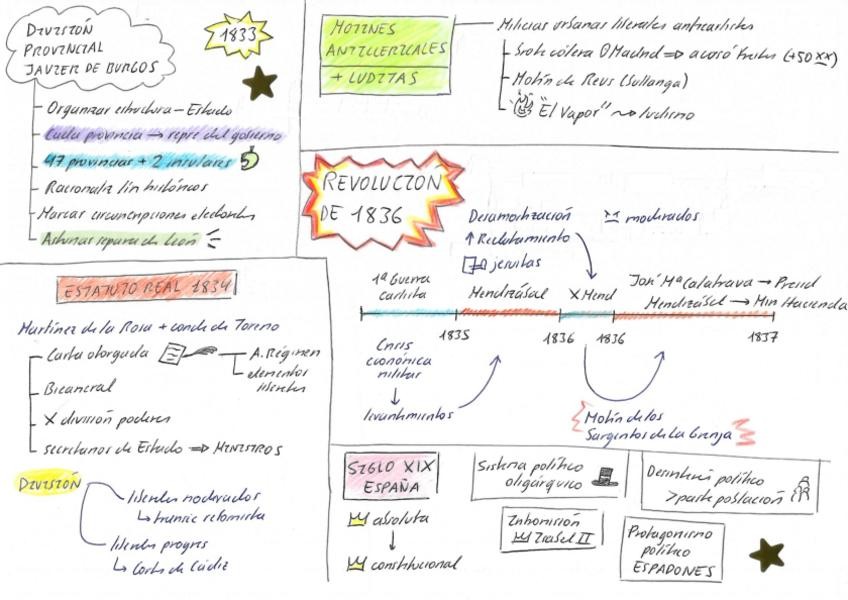 DIVISIÓN
PROVINCIAL
JAVIER DE BURGOS
1833
Organizar estructura - Estado
Cada provincia → repre del gobierno
47 provincias + 2 insulares
Racionaliz lin históricos
Marcas circunscripciones electorales
Asturias separa de León
MOTINES
ANTICLERICALES
+ LUDITAS
Milicias urbanas liberales anticarlistas
Brote cólera Madrid ⇒ acosó frailes (+50 xx)
Motín de Reus (Bullanga)
"El Vapor" ~> ludismo
REVOLUCIÓN
DE 1836
Desamortización
↑ Reclutamiento
jesuitas
moderados
1ª Guerra
carlista
Mendizábal
X Mend
José Mª Calatrava → Presid
Mendizábal → Min Hacienda
1835
1836
1836
1837
Crisis
económica
militar
↓
levantamientos
Motín de los
Sargentos de la Granja
ESTATUTO REAL 1834
Martínez de la Rosa + conde de Toreno
Carta otorgada
A. Régimen
elementos
liberales
Bicameral
X división poderes
secretarios de Estado ⇒ MINISTROS
DIVISIÓN
liberales moderados
↳ transic reformista
liberales progres
↳ Corts de Cádiz
SIGLO XIX
ESPAÑA
absoluta
↓
constitucional
Sistema político
oligárquico
Desinterés político
> parte población
Intromisión
Isabel II
Protagonismo
político
ESPADONES